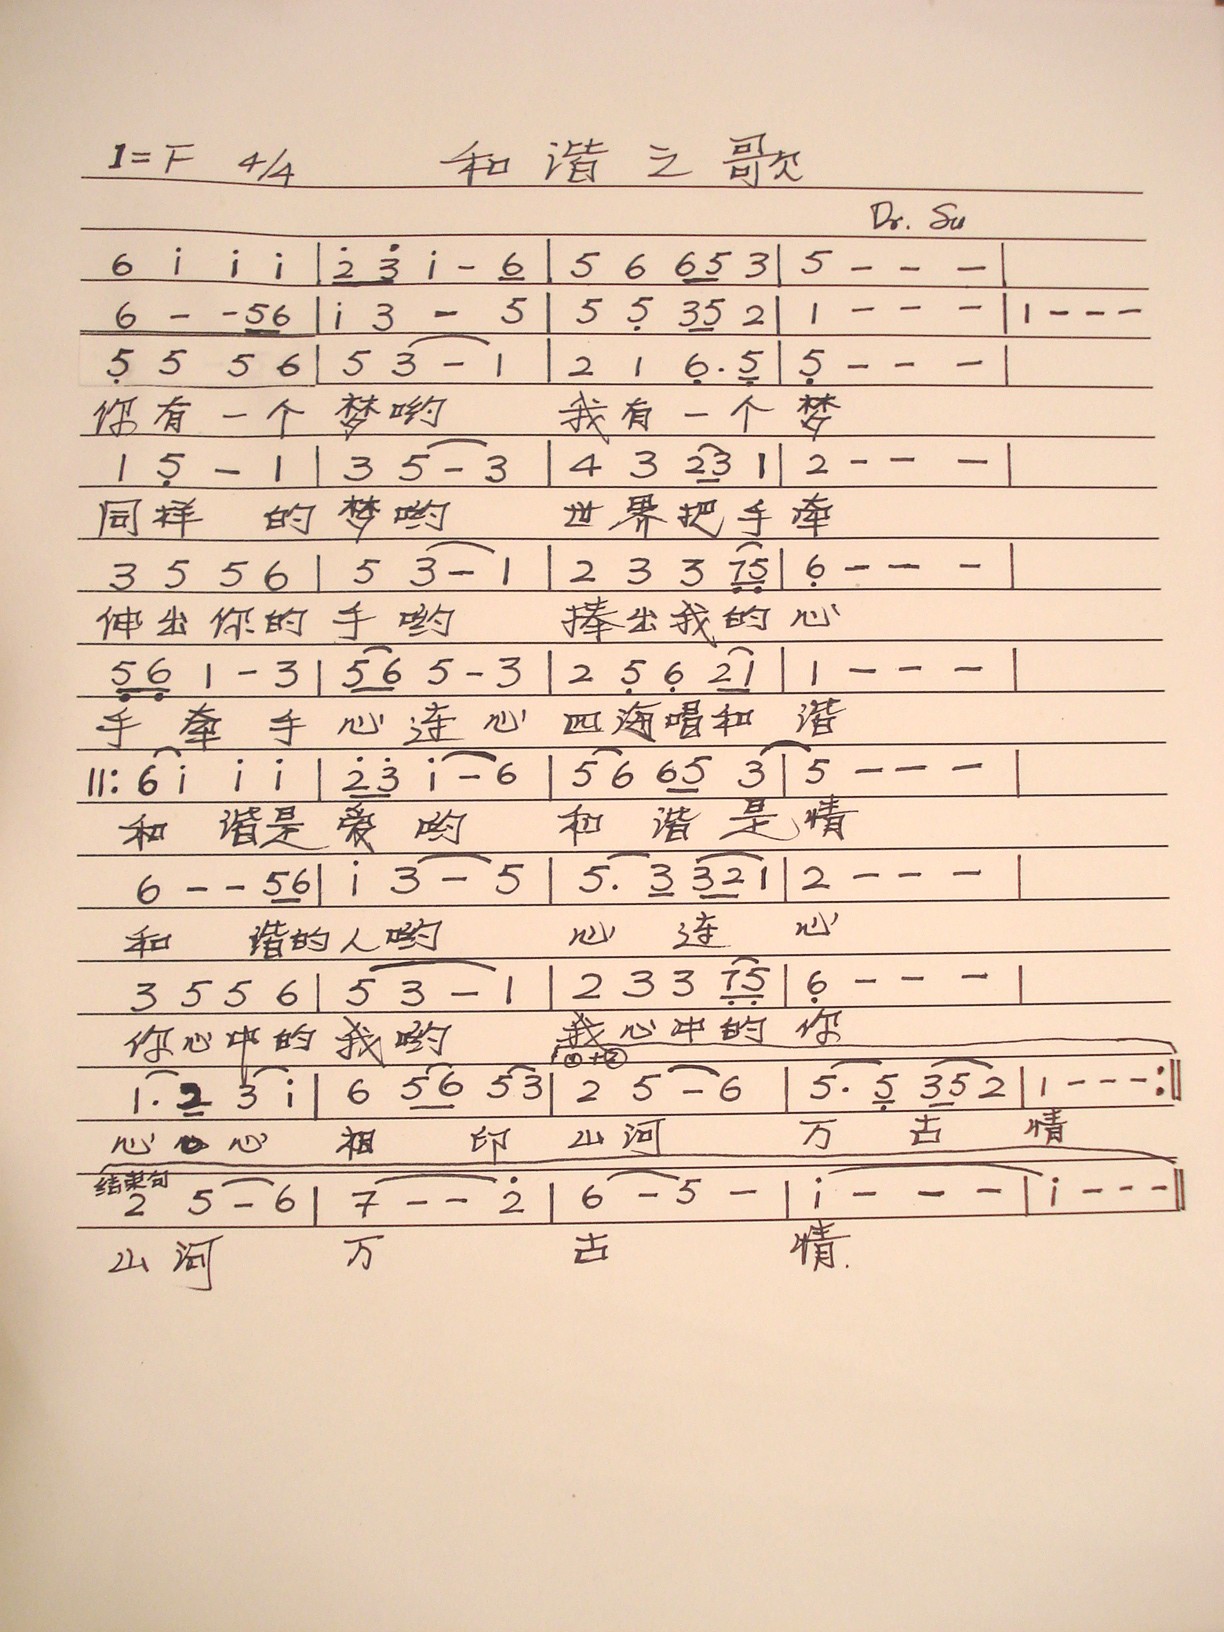 1=F 4/4 和谐之歌
Dr. Su
6 i̇ i̇ i̇ | 2̇ 3̇ i̇ - 6 | 5 6 65 3 | 5 - - - |
6 - - 56 | i̇ 3 - 5 | 5 5̣ 35 2 | 1 - - - | 1 - - -
5̣ 5 5 6 | 5 3 - 1 | 2 1 6̣. 5̣ | 5̣ - - - |
你有一个梦哟 我有一个梦
1 5̣ - 1 | 3 5 - 3 | 4 3 23 1 | 2 - - - |
同样 的梦哟 世界把手牵
3 5 5 6 | 5 3 - 1 | 2 3 3 7̣5̣ | 6̣ - - - |
伸出你的手哟 捧出我的心
5̣6̣ 1 - 3 | 56 5 - 3 | 2 5̣ 6̣ 21 | 1 - - - |
手牵手心连心四海唱和谐
||: 6 i̇ i̇ i̇ | 2̇3̇ i̇ - 6 | 5 6 65 3 | 5 - - - |
和谐是爱哟 和谐是情
6 - - 56 | i̇ 3 - 5 | 5. 3 32 1 | 2 - - - |
和 谐的人哟 心连心
3 5 5 6 | 5 3 - 1 | 2 3 3 7̣5̣ | 6̣ - - - |
你心中的我哟 我心中的你
①+②
1. 2 3 i̇ | 6 56 53 | 2 5 - 6 | 5. 5̣ 35 2 | 1 - - - :||
心心相印 山河 万古情
结束句
2 5 - 6 | 7 - - 2̇ | 6 - 5 - | i̇ - - - | i̇ - - - ||
山河 万 古 情.